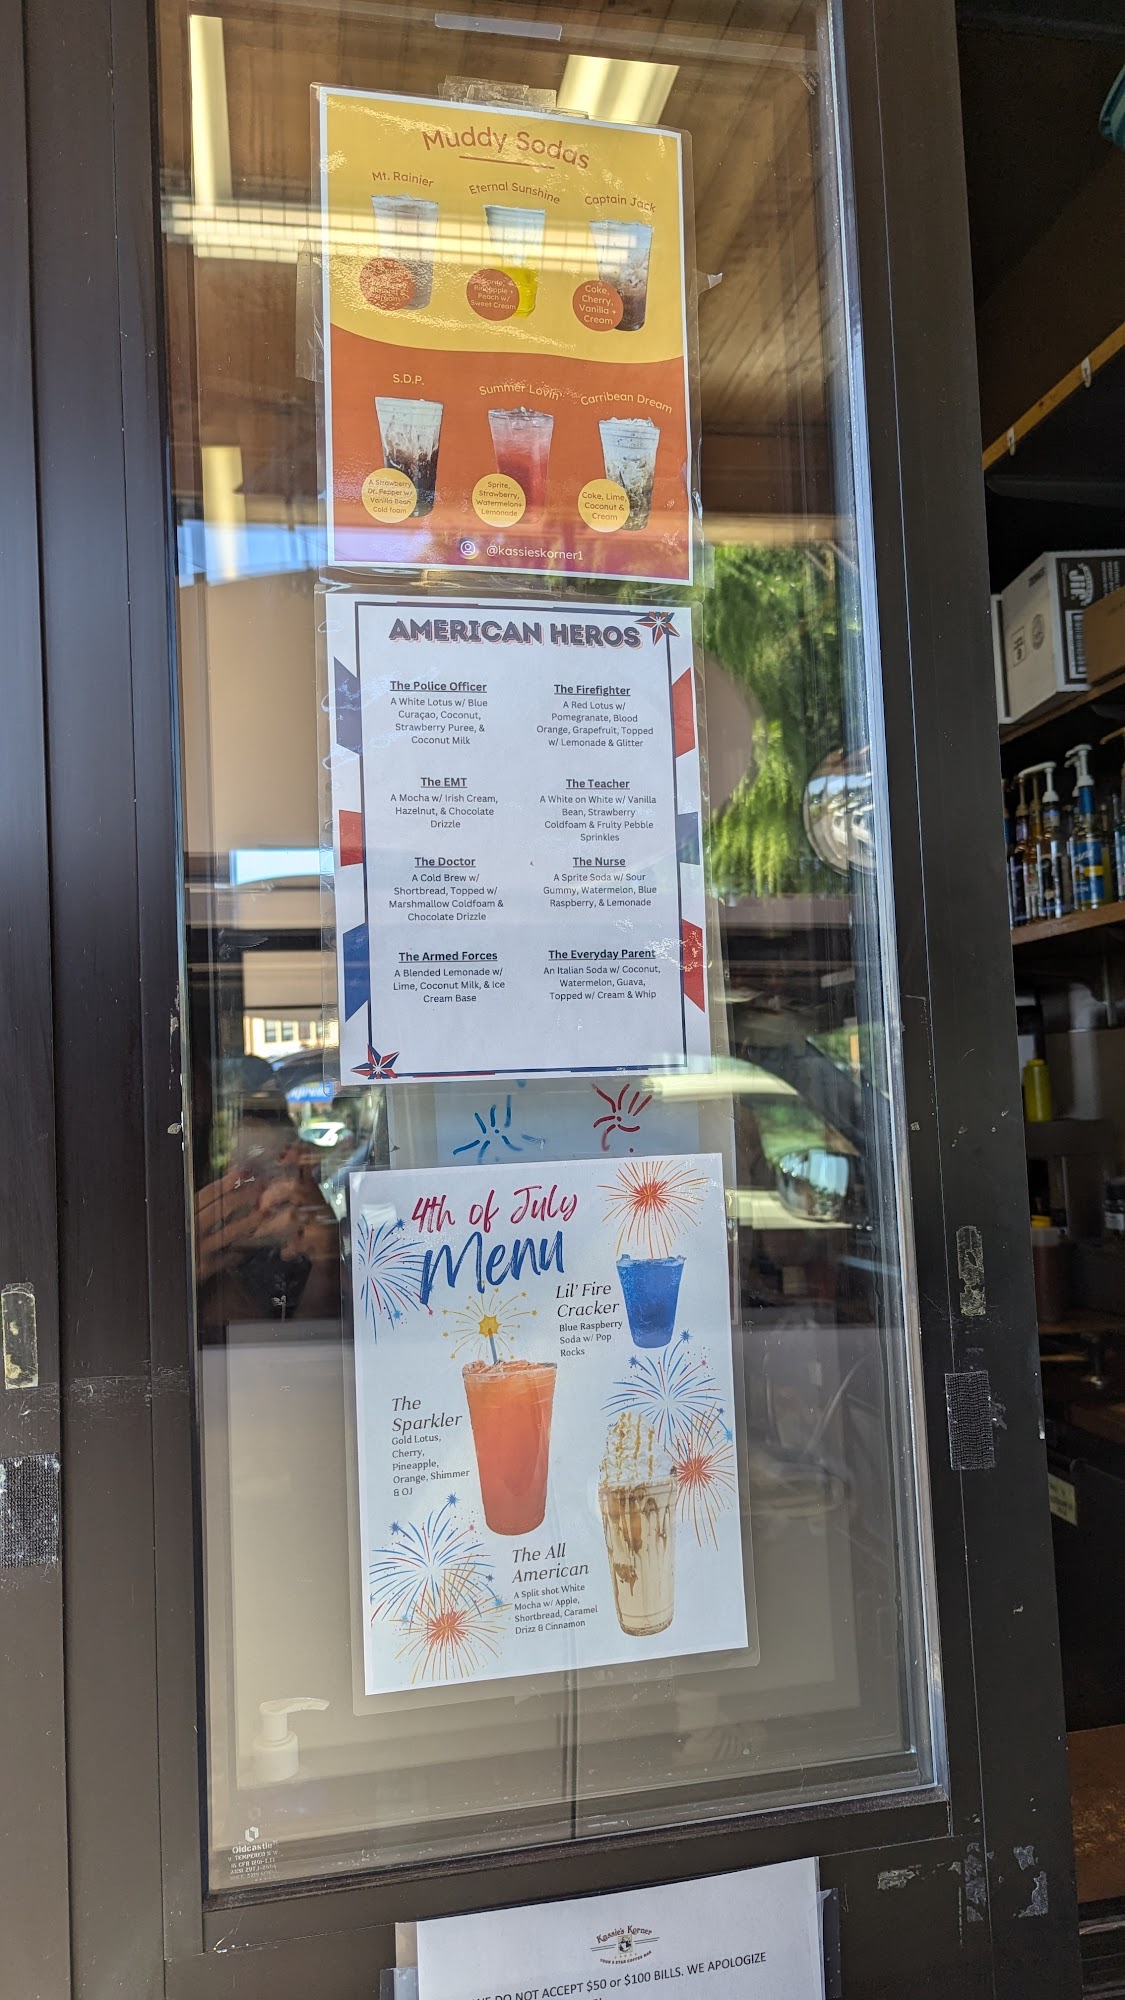 Muddy Sodas
Mt. Rainier
Eternal Sunshine
Captain Jack
Sprite,
Pineapple +
Peach w/
Sweet Cream
Coke,
Cherry,
Vanilla +
Cream
S.D.P.
Summer Lovin'
Carribean Dream
A Strawberry
Dr. Pepper w/
Vanilla Bean
Cold foam
Sprite,
Strawberry,
Watermelon+
Lemonade
Coke, Lime,
Coconut &
Cream
@kassieskorner1
AMERICAN HEROS
The Police Officer
A White Lotus w/ Blue
Curaçao, Coconut,
Strawberry Puree, &
Coconut Milk
The Firefighter
A Red Lotus w/
Pomegranate, Blood
Orange, Grapefruit, Topped
w/ Lemonade & Glitter
The EMT
A Mocha w/ Irish Cream,
Hazelnut, & Chocolate
Drizzle
The Teacher
A White on White w/ Vanilla
Bean, Strawberry
Coldfoam & Fruity Pebble
Sprinkles
The Doctor
A Cold Brew w/
Shortbread, Topped w/
Marshmallow Coldfoam &
Chocolate Drizzle
The Nurse
A Sprite Soda w/ Sour
Gummy, Watermelon, Blue
Raspberry, & Lemonade
The Armed Forces
A Blended Lemonade w/
Lime, Coconut Milk, & Ice
Cream Base
The Everyday Parent
An Italian Soda w/ Coconut,
Watermelon, Guava,
Topped w/ Cream & Whip
4th of July
Menu
Lil' Fire
Cracker
Blue Raspberry
Soda w/ Pop
Rocks
The
Sparkler
Gold Lotus,
Cherry,
Pineapple,
Orange, Shimmer
& OJ
The All
American
A Split shot White
Mocha w/ Apple,
Shortbread, Caramel
Drizz & Cinnamon
Oldcastle
TEMPERED
Kassie's Korner
DO NOT ACCEPT $50 or $100 BILLS. WE APOLOGIZE